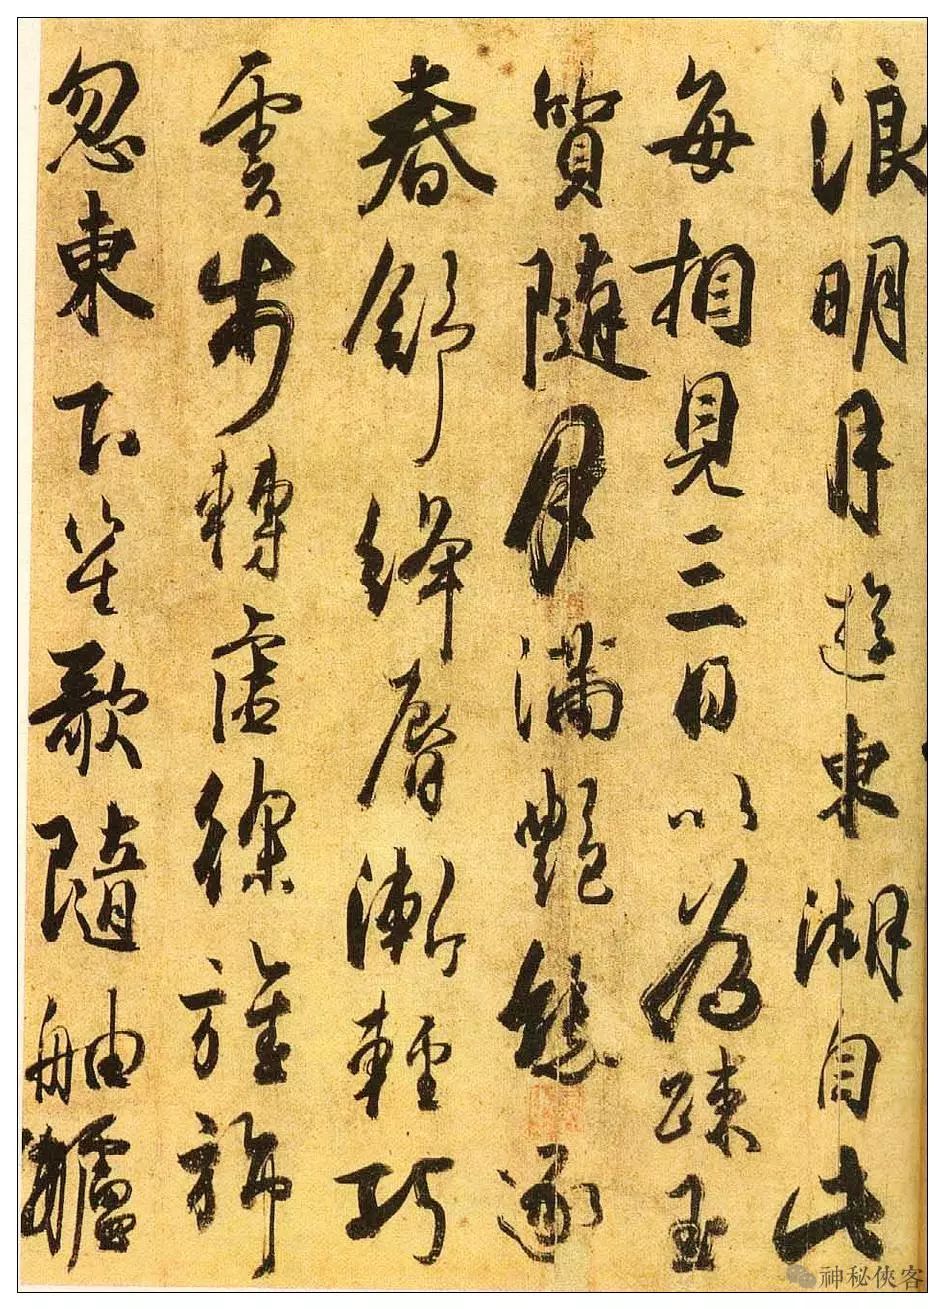 浪明月遊東湖自此
每相見三日以為疎玉
質隨月滿艷態逐
春舒絳脣漸輕巧
雲步轉虛徐旌旆
忽東下笙歌隨舳艫
神秘俠客